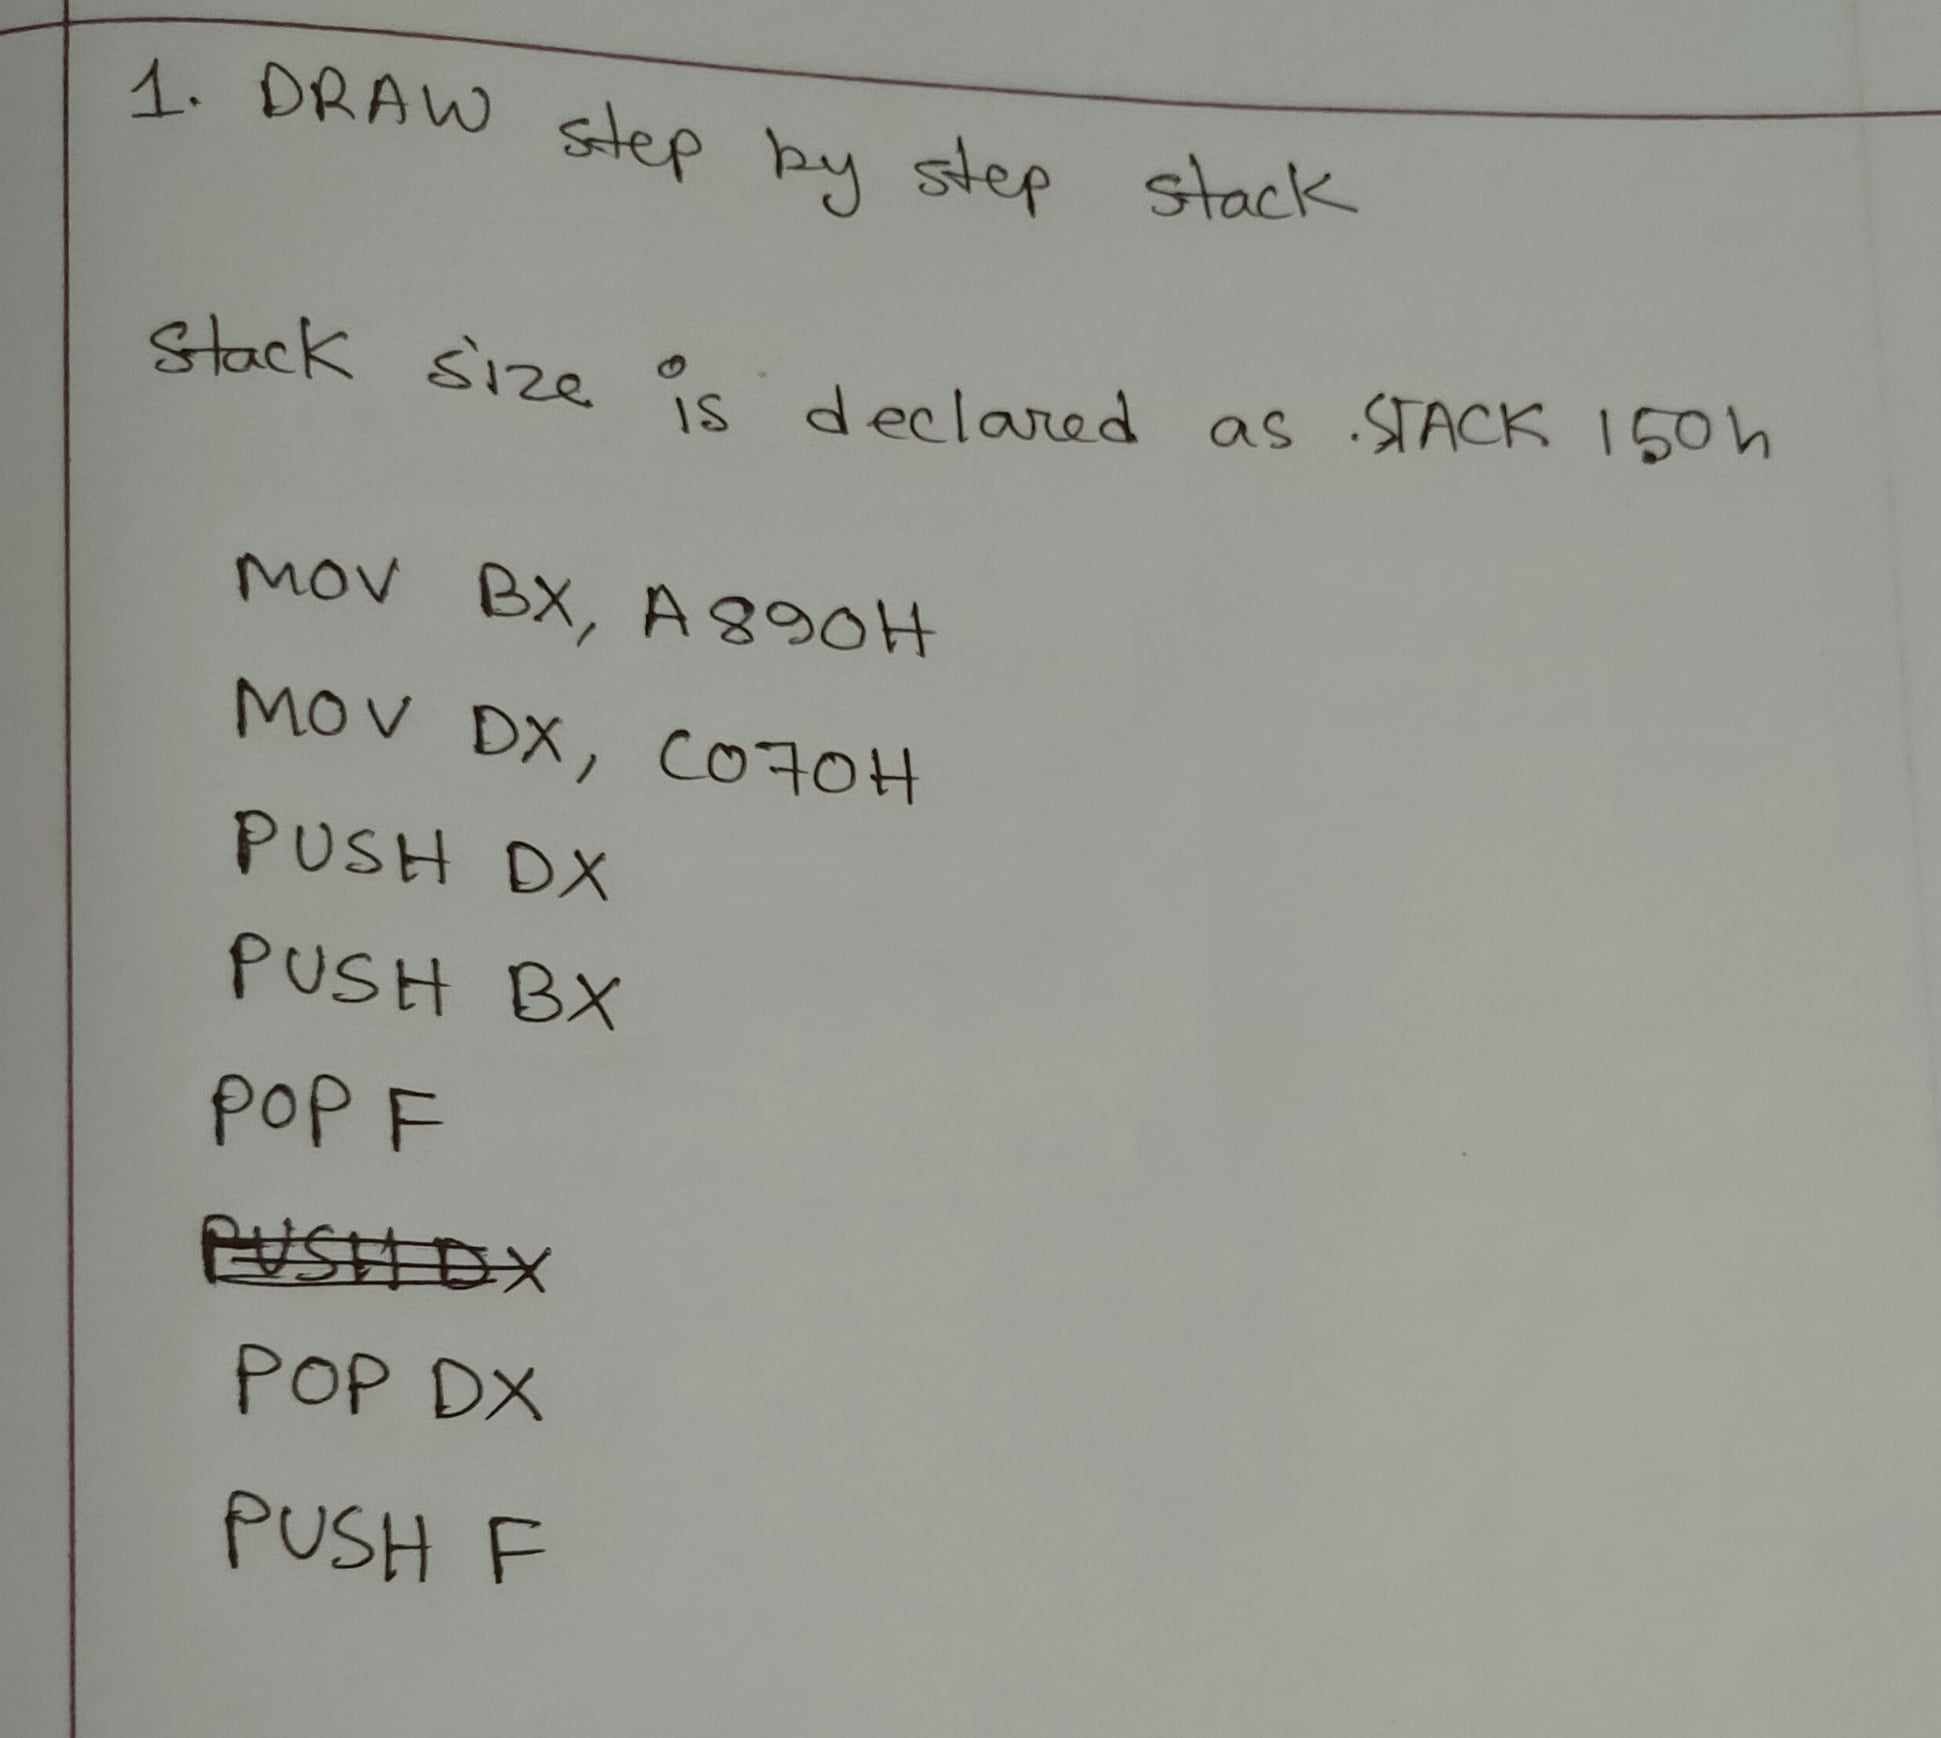 1. DRAW step by step stack
Stack size is declared as .STACK 150h
MOV BX, A890H
MOV DX, C070H
PUSH DX
PUSH BX
POP F
PUSH DX
POP DX
PUSH F